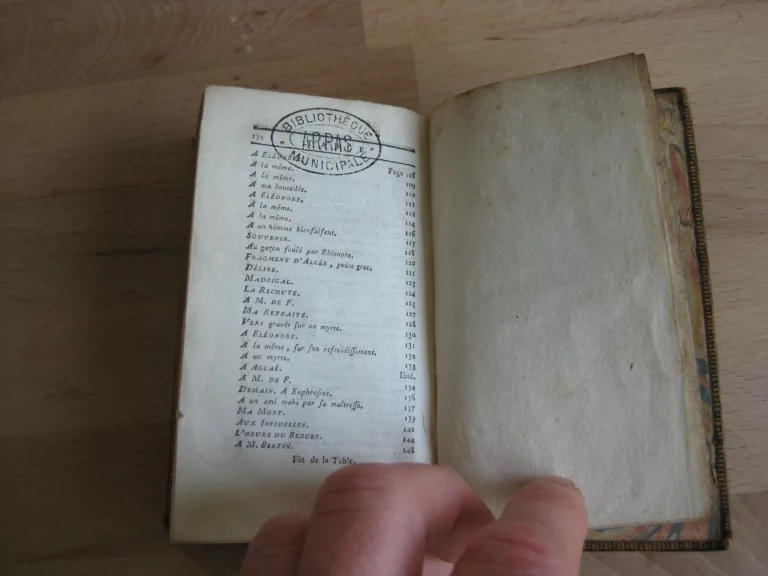 BIBLIOTHÈQUE
ARRAS
MUNICIPALE
152
A ELÉONORE. Page 108
A la même. 109
A la même. 110
A ma bouteille. 111
A ELÉONORE. 112
A la même. 114
A la même. 116
A un homme bienfaisant. 117
SOUVENIR. 118
Au gazon foulé par Eléonore. 120
FRAGMENT D'ALCÉE, poëte grec. 121
DÉLIRE. 123
MADRIGAL. 124
LA RECHUTE. 125
A M. DE F. 127
MA RETRAITE. 128
VERS gravés sur un myrte. 130
A ELÉONORE. 131
A la même, sur son refroidissement. 132
A un myrte. 133
A AGLAÉ. Ibid.
A M. DE F. 134
DEMAIN. A Euphrosine. 136
A un ami trahi par sa maîtresse. 137
MA MORT. 139
AUX INFIDELLES. 142
L'HEURE DU BERGER. 144
A M. BERTIN. 148
Fin de la Table.